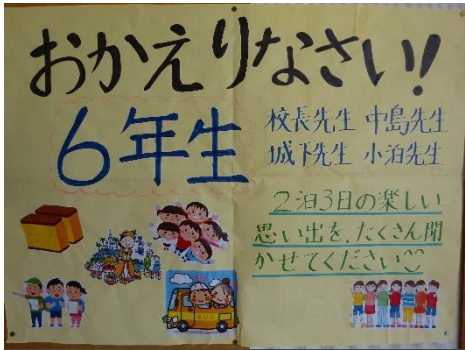 おかえりなさい!
6年生
校長先生 中島先生
城下先生 小泊先生
2泊3日の楽しい
思い出を、たくさん聞
かせてください
BUS